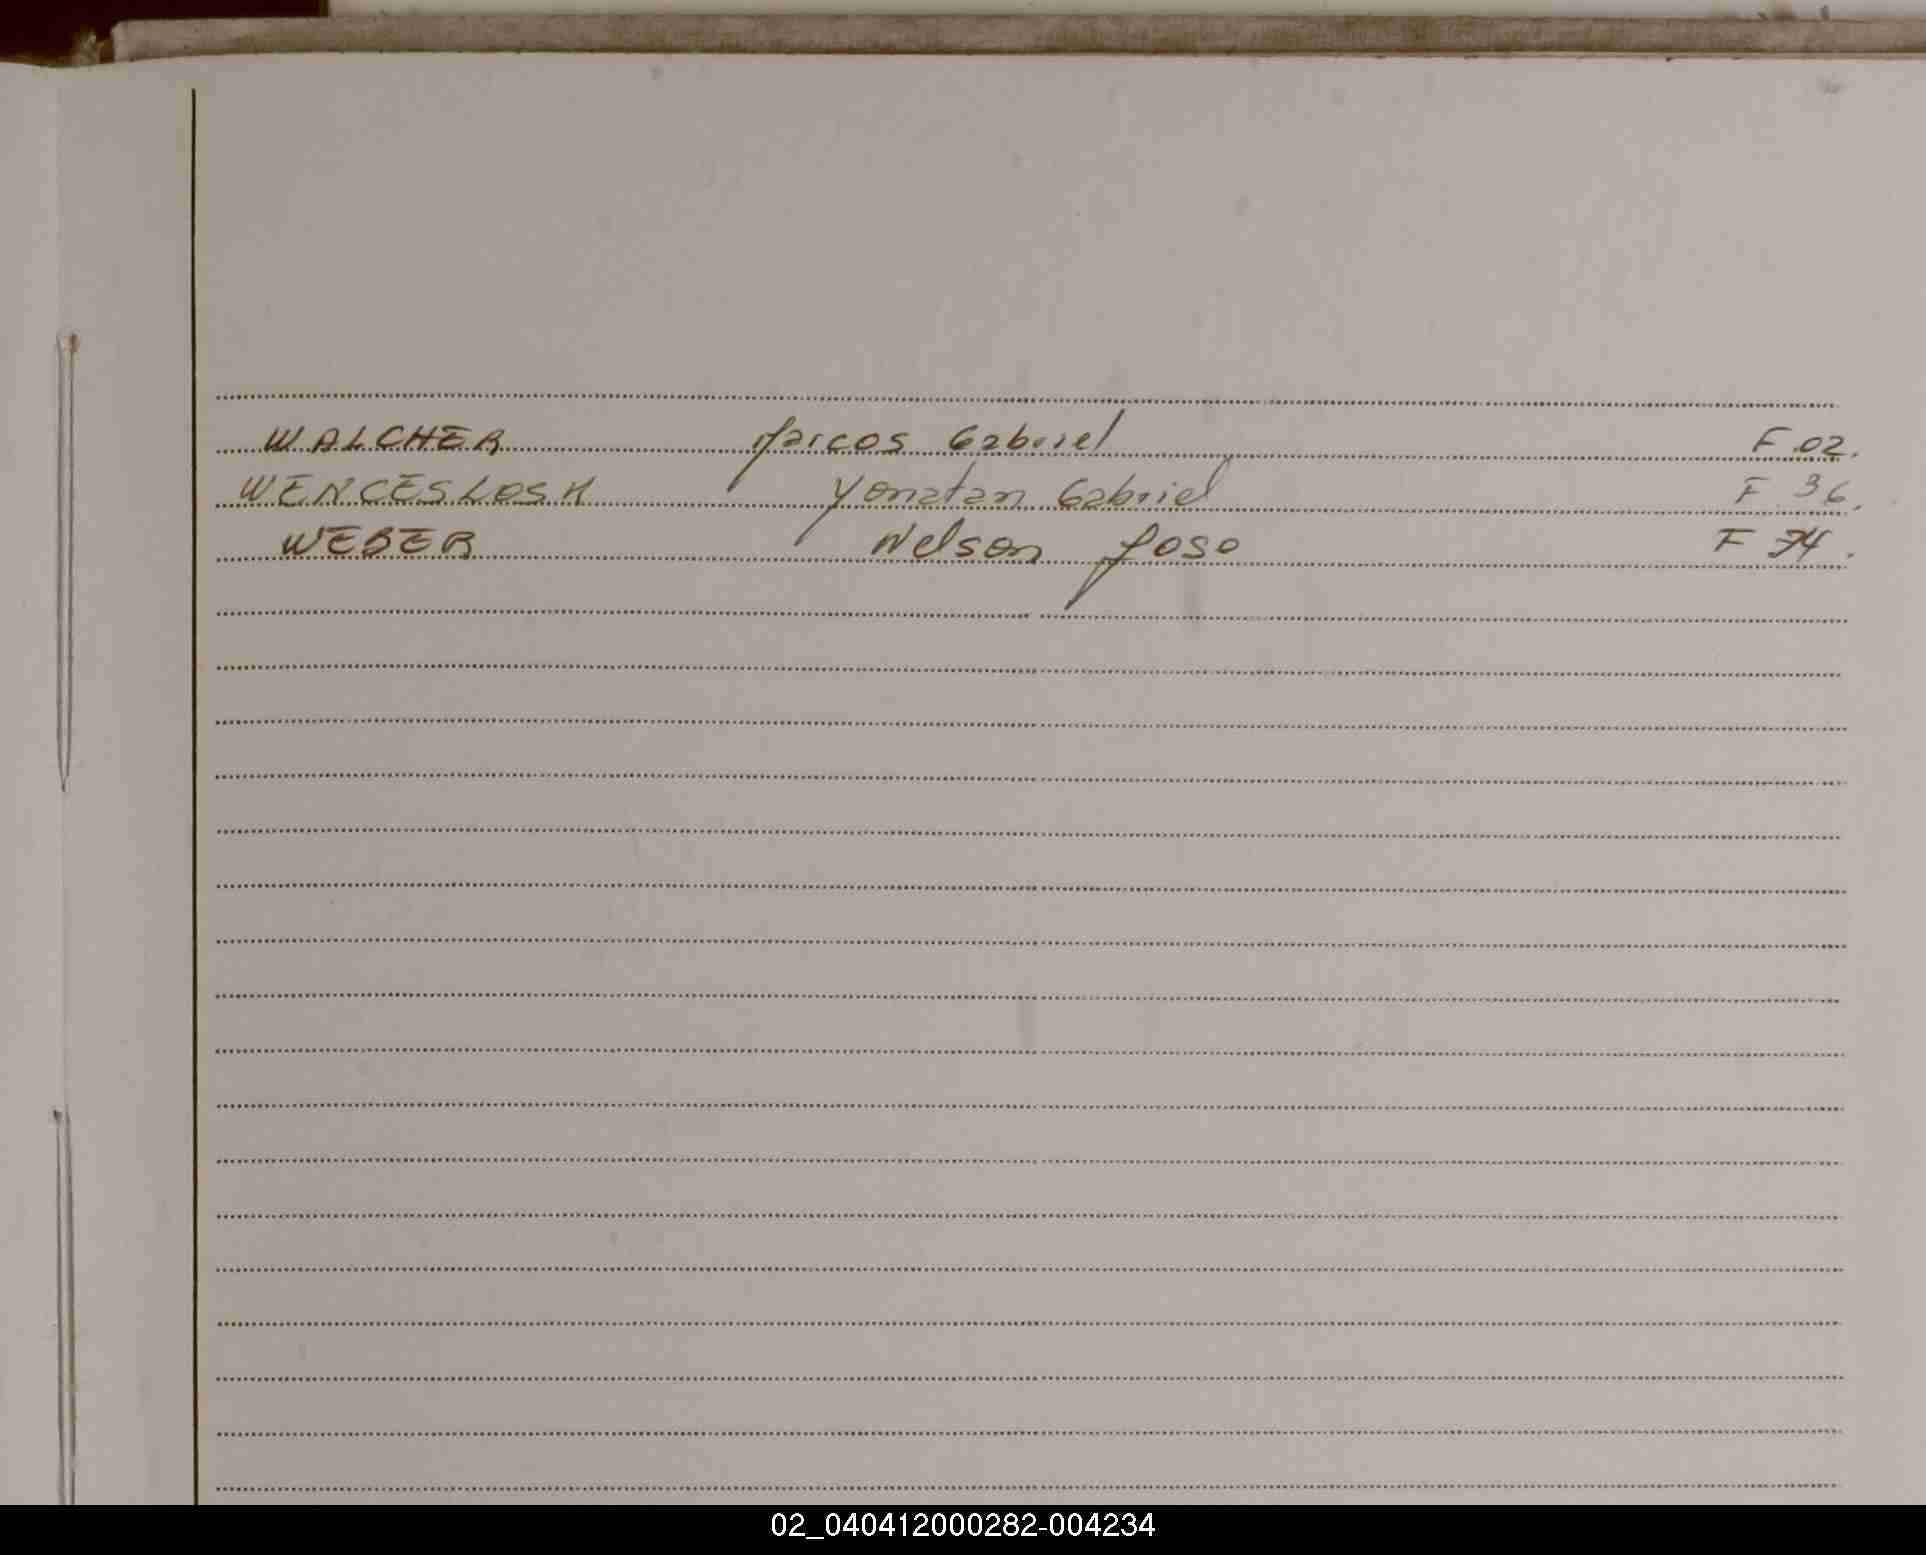 WALCHER Marcos Gabriel F 02.
WENCESLOSH Yonatan Gabriel F 36.
WEBER Nelson Jose F 74.
02_040412000282-004234